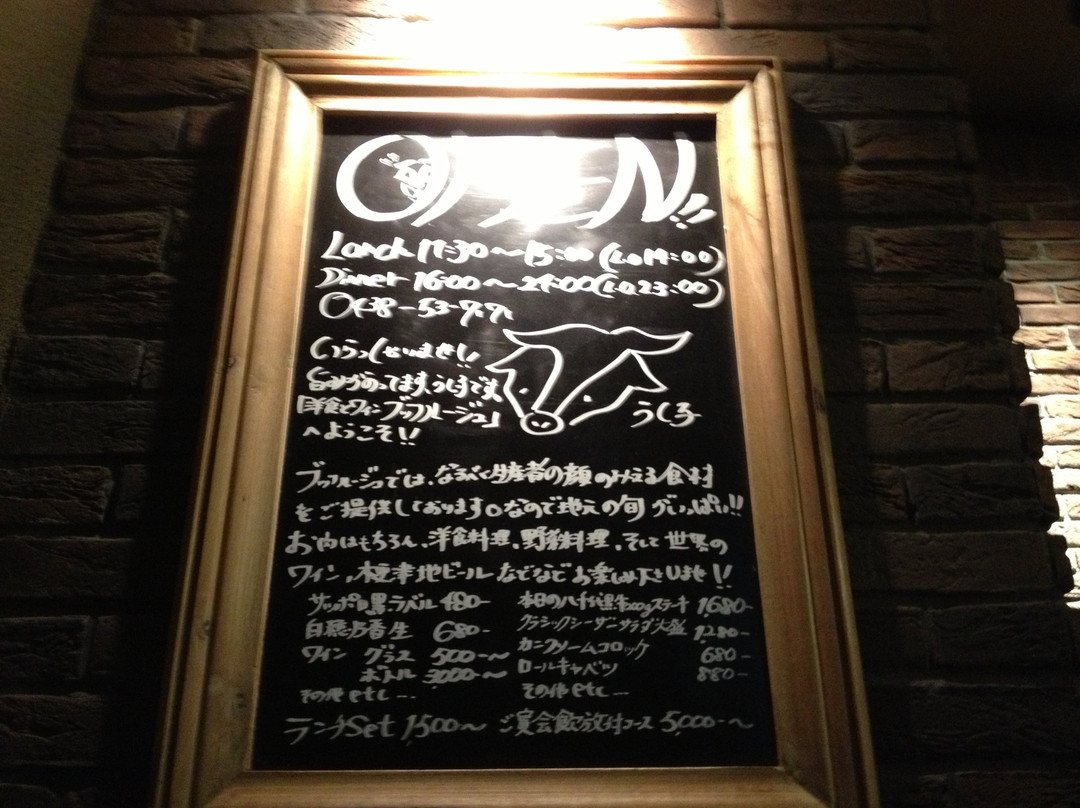 OPEN!!
Lunch 11:30～15:00(L.o 14:00)
Dinner 16:00～24:00(L.o.23:00)
0438-53-
いらっしゃいませ!!
旨みがのってます、うし子です。
うし子
「洋食とワイン ブッフルージュ」
へようこそ!!
ブッフルージュでは、なるべく生産者の顔のみえる食材
をご提供しております。なので地元の旬がいっぱい!!
お肉はもちろん、洋食料理、野菜料理、そして世界の
ワイン、木更津地ビールなどなどお楽しみ下さいませ!!
サッポロ黒ラベル 480-
本日の八千代黒牛200gステーキ 1,680-
白穂乃香生 680-
クラシックシーザーサラダ大盛 1,280-
ワイン グラス 500-～
カニクリームコロッケ 680-
ボトル 3000-～
ロールキャベツ 880-
その他etc...
その他etc...
ランチSet 1,500～ ご宴会飲放付コース 5,000-～